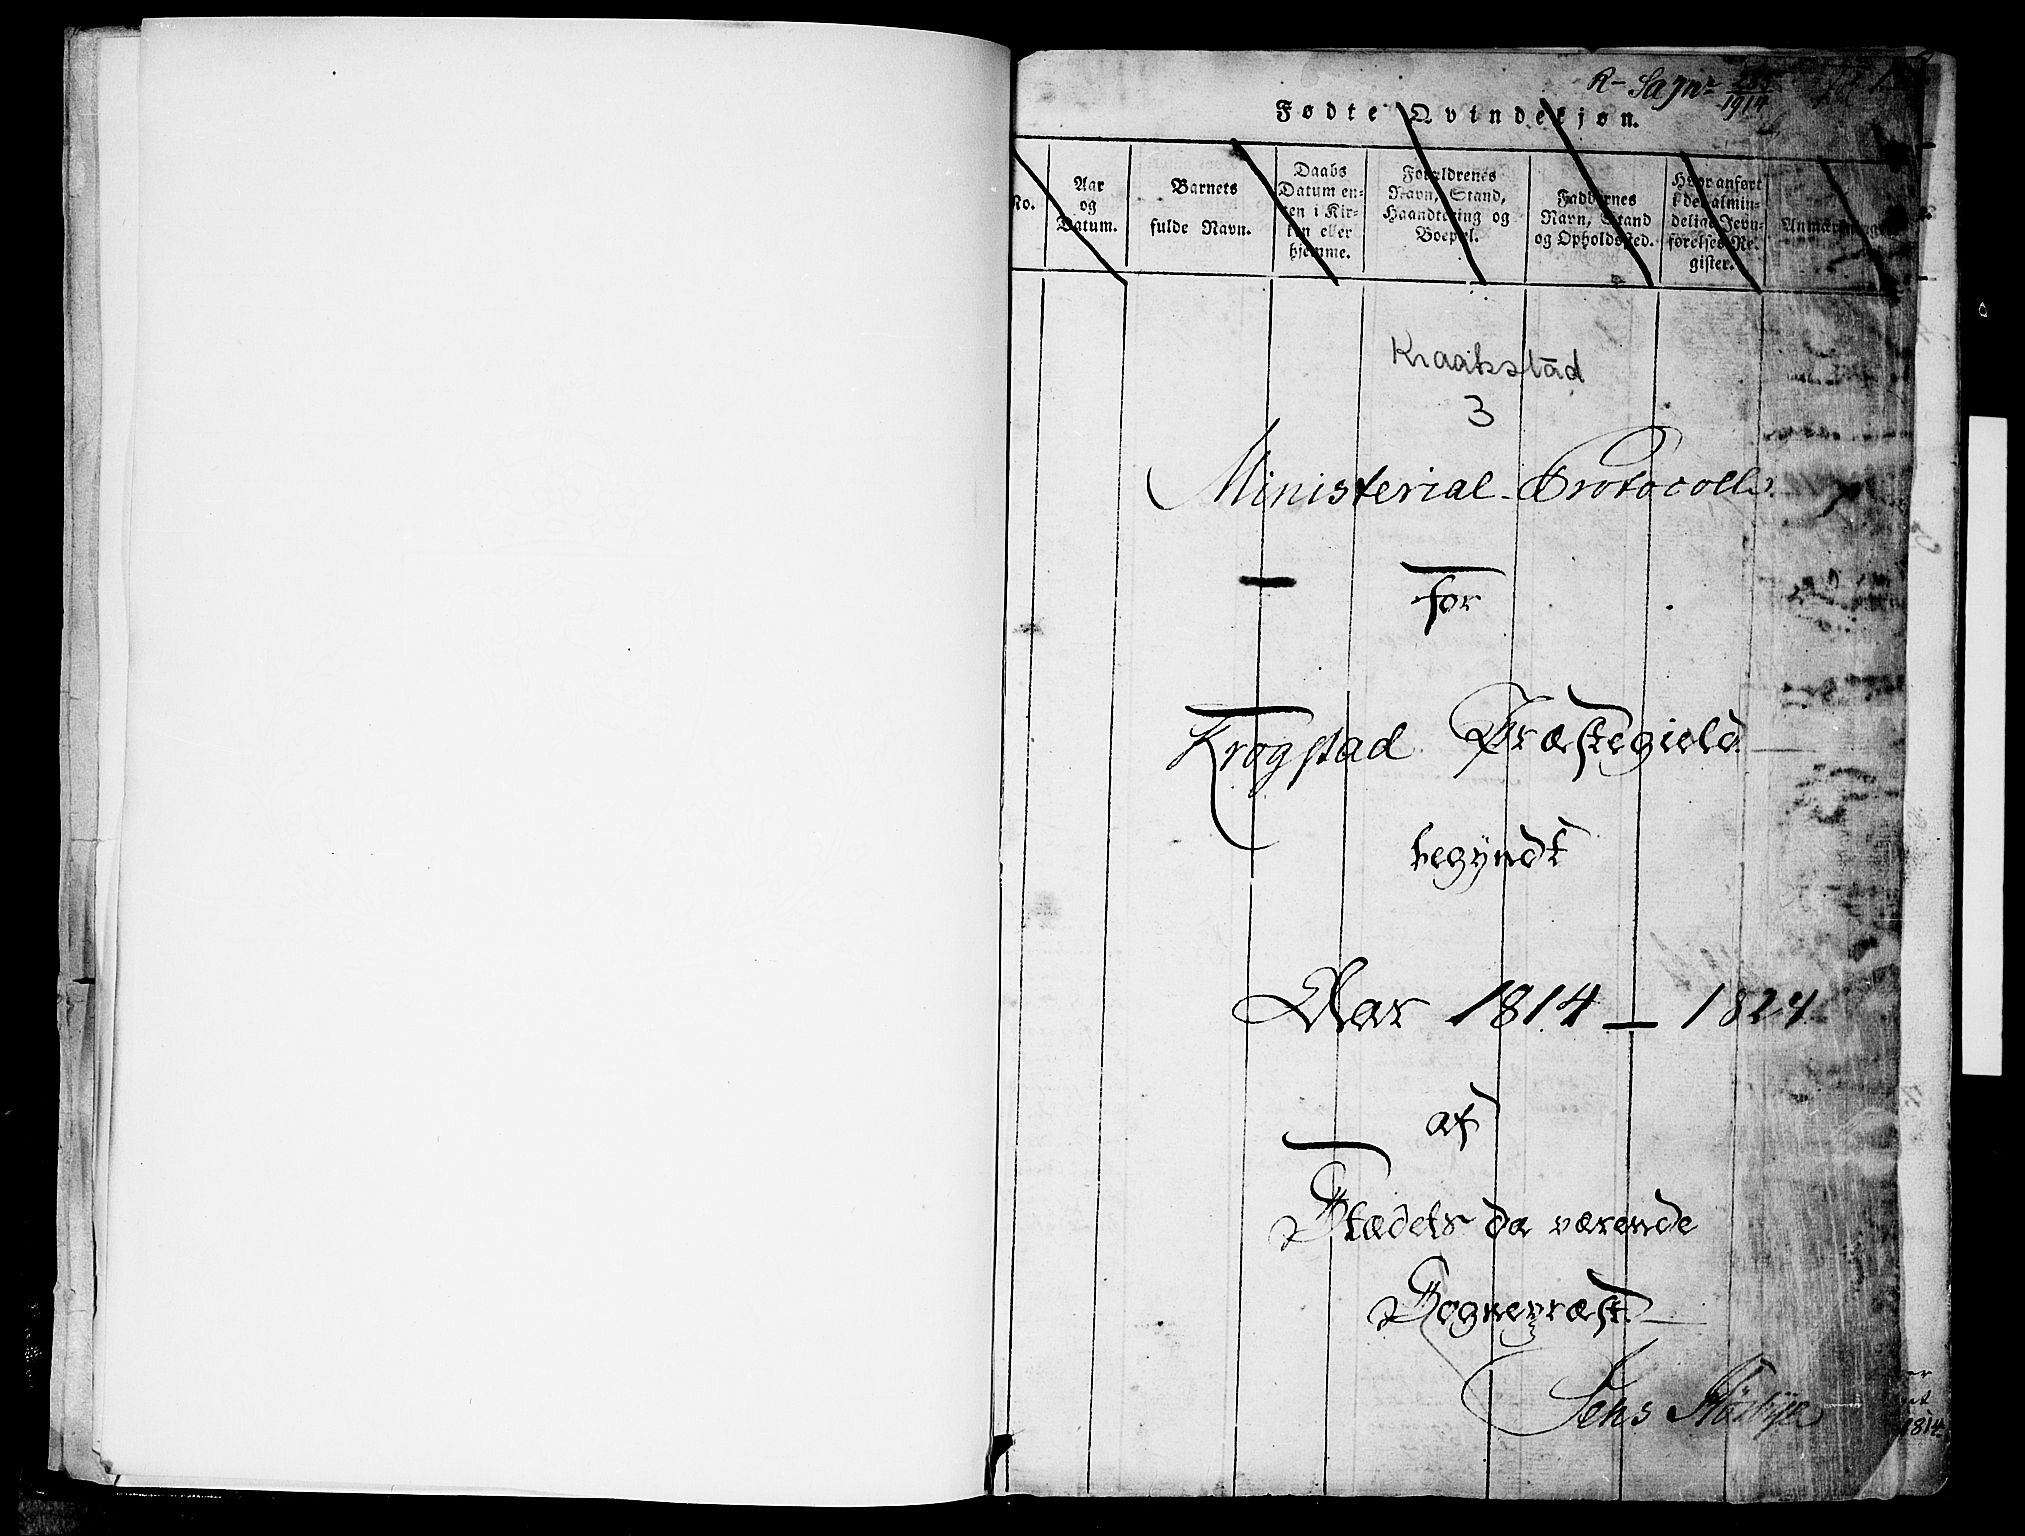 R- Sagn:
1914
Fødte Qvindekjøn.
No.
Aar
og
Datum.
Barnets
fulde Navn.
Daabs
Datum en-
ten i Kir-
ken eller
hjemme.
Forældrenes
Navn, Stand,
Haandtering og
Boepæl.
Faddernes
Navn, Stand
og Opholdssted.
Hvor anført
i det almin-
delige Jevn-
førelses Re-
gister.
Kraakstad
3
Ministerial-Protocoll
for
Krogstad Præstegield
begyndt
Aar 1814 – 1824
af
Stædets da værende
Sognepræst
Jens
1814